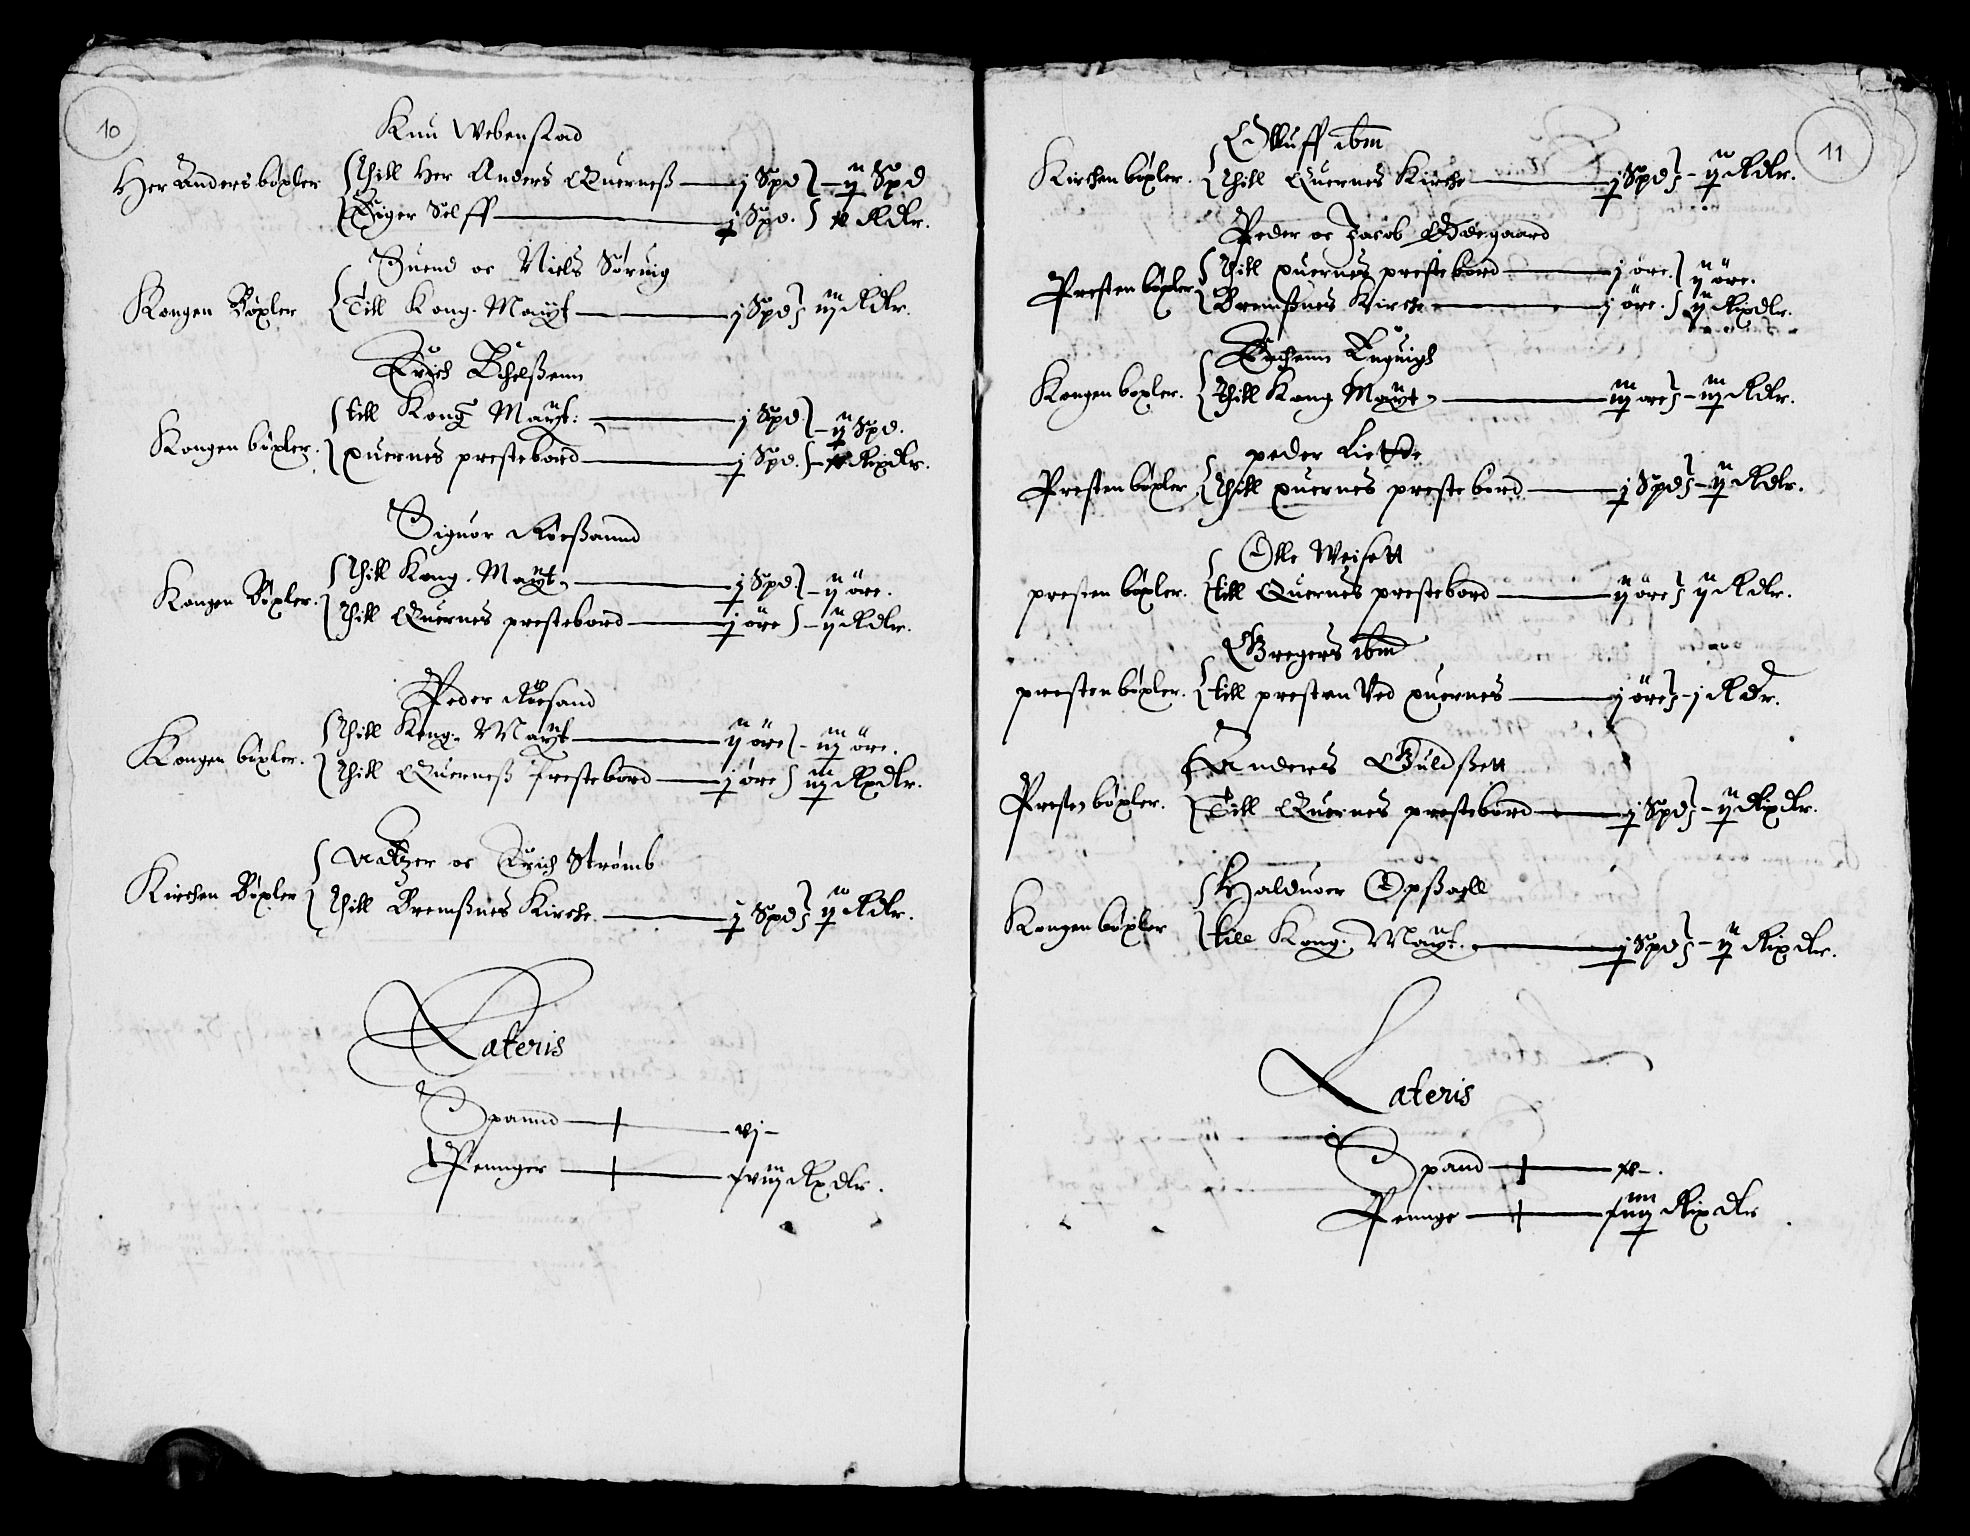 10
Knu Webenstad
Her Anders böxler
Thill Her Anders Querneß — j Spd — ij Spd
Eiger Selff — j Spd. Rdlr.
Suend oc Niels Söruig
Kongen Böxler
Till Kong. Mayt — j Spd iij Rdlr.
Erich
Kongen böxler.
till Kong Mayt: — j Spd — ij Spd.
quernes prestebord — j Spd. — Rixdlr.
Siguor Röeßannd
Kongen Böxler.
Thill Kong. Mayt. — j Spd. — ij öre.
Thill Quernes prestebord — j öre — ij Rdlr.
Peder Röesand
Kongen böxler.
Thill Kong. Mayt — ij öre — iij öre.
Thill Querneß Prestebord — j öre iij Rxdlr.
oc Erich Strömb
Kirchen Böxler
Thill Bremßnes Kirche. — j Spd ij Rdlr.
Lateris
Spannd — vj —
Pennger — Rxdlr.
11
Oluff ibm
Kirchen böxler.
Thill Quernes Kirche — j Spd — ij Rdlr.
Peder oc Jacob Ödegaard
Presten böxler
Thill quernes prestebord — j öre. ij öre.
Bremßnes Kirche — j öre. ij Rixdlr.
Kongen boxler.
Thill Kong Mayt — iij öre — iij Rdlr.
peder
Presten böxler
Thill quernes prestebord — j Spd — ij Rdlr.
Olle Weisett
presten böxler.
till Quernes prestebord — ij öre ij Rdlr.
Gregers ibm
presten böxler.
till presten Ved quernes — j öre — j Rdr.
Anders Guldßett
Presten böxler.
Till Quernes prestebord — j Spd — ij Rixdlr.
Halduoer Opßaell
Kongen böxler
till Kong. Mayt. — j Spd — ij Rixdlr.
Lateris
Spand —
Pennge — Rixdlr